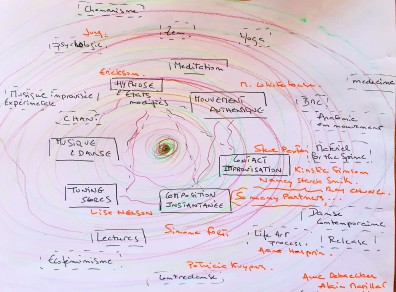 Chamanisme
Jung
Zen
Yoga
Psychologie
Meditation
Erickson
HYPNOSE
ETATS
modifiés
M. Whitehouse
medecine
Musique improvisée
Expérimentale
MOUVEMENT
AUTHENTIQUE
BMC
Anatomie
en mouvement
CHANT
MUSIQUE
& DANSE
Steve Paxton
Material
for the Spine
CONTACT
IMPROVISATION
Kirstie Simson
Nancy Stark Smith
Ray Chung
TUNING
SCORES
COMPOSITION
INSTANTANÉE
So many Partners...
LISA NELSON
Danse
Contemporaine
Lectures
Simone Forti
Life Art
Process
Release
Anna Halprin
Ecoféminisme
Patricia Kuypers
Contredanse